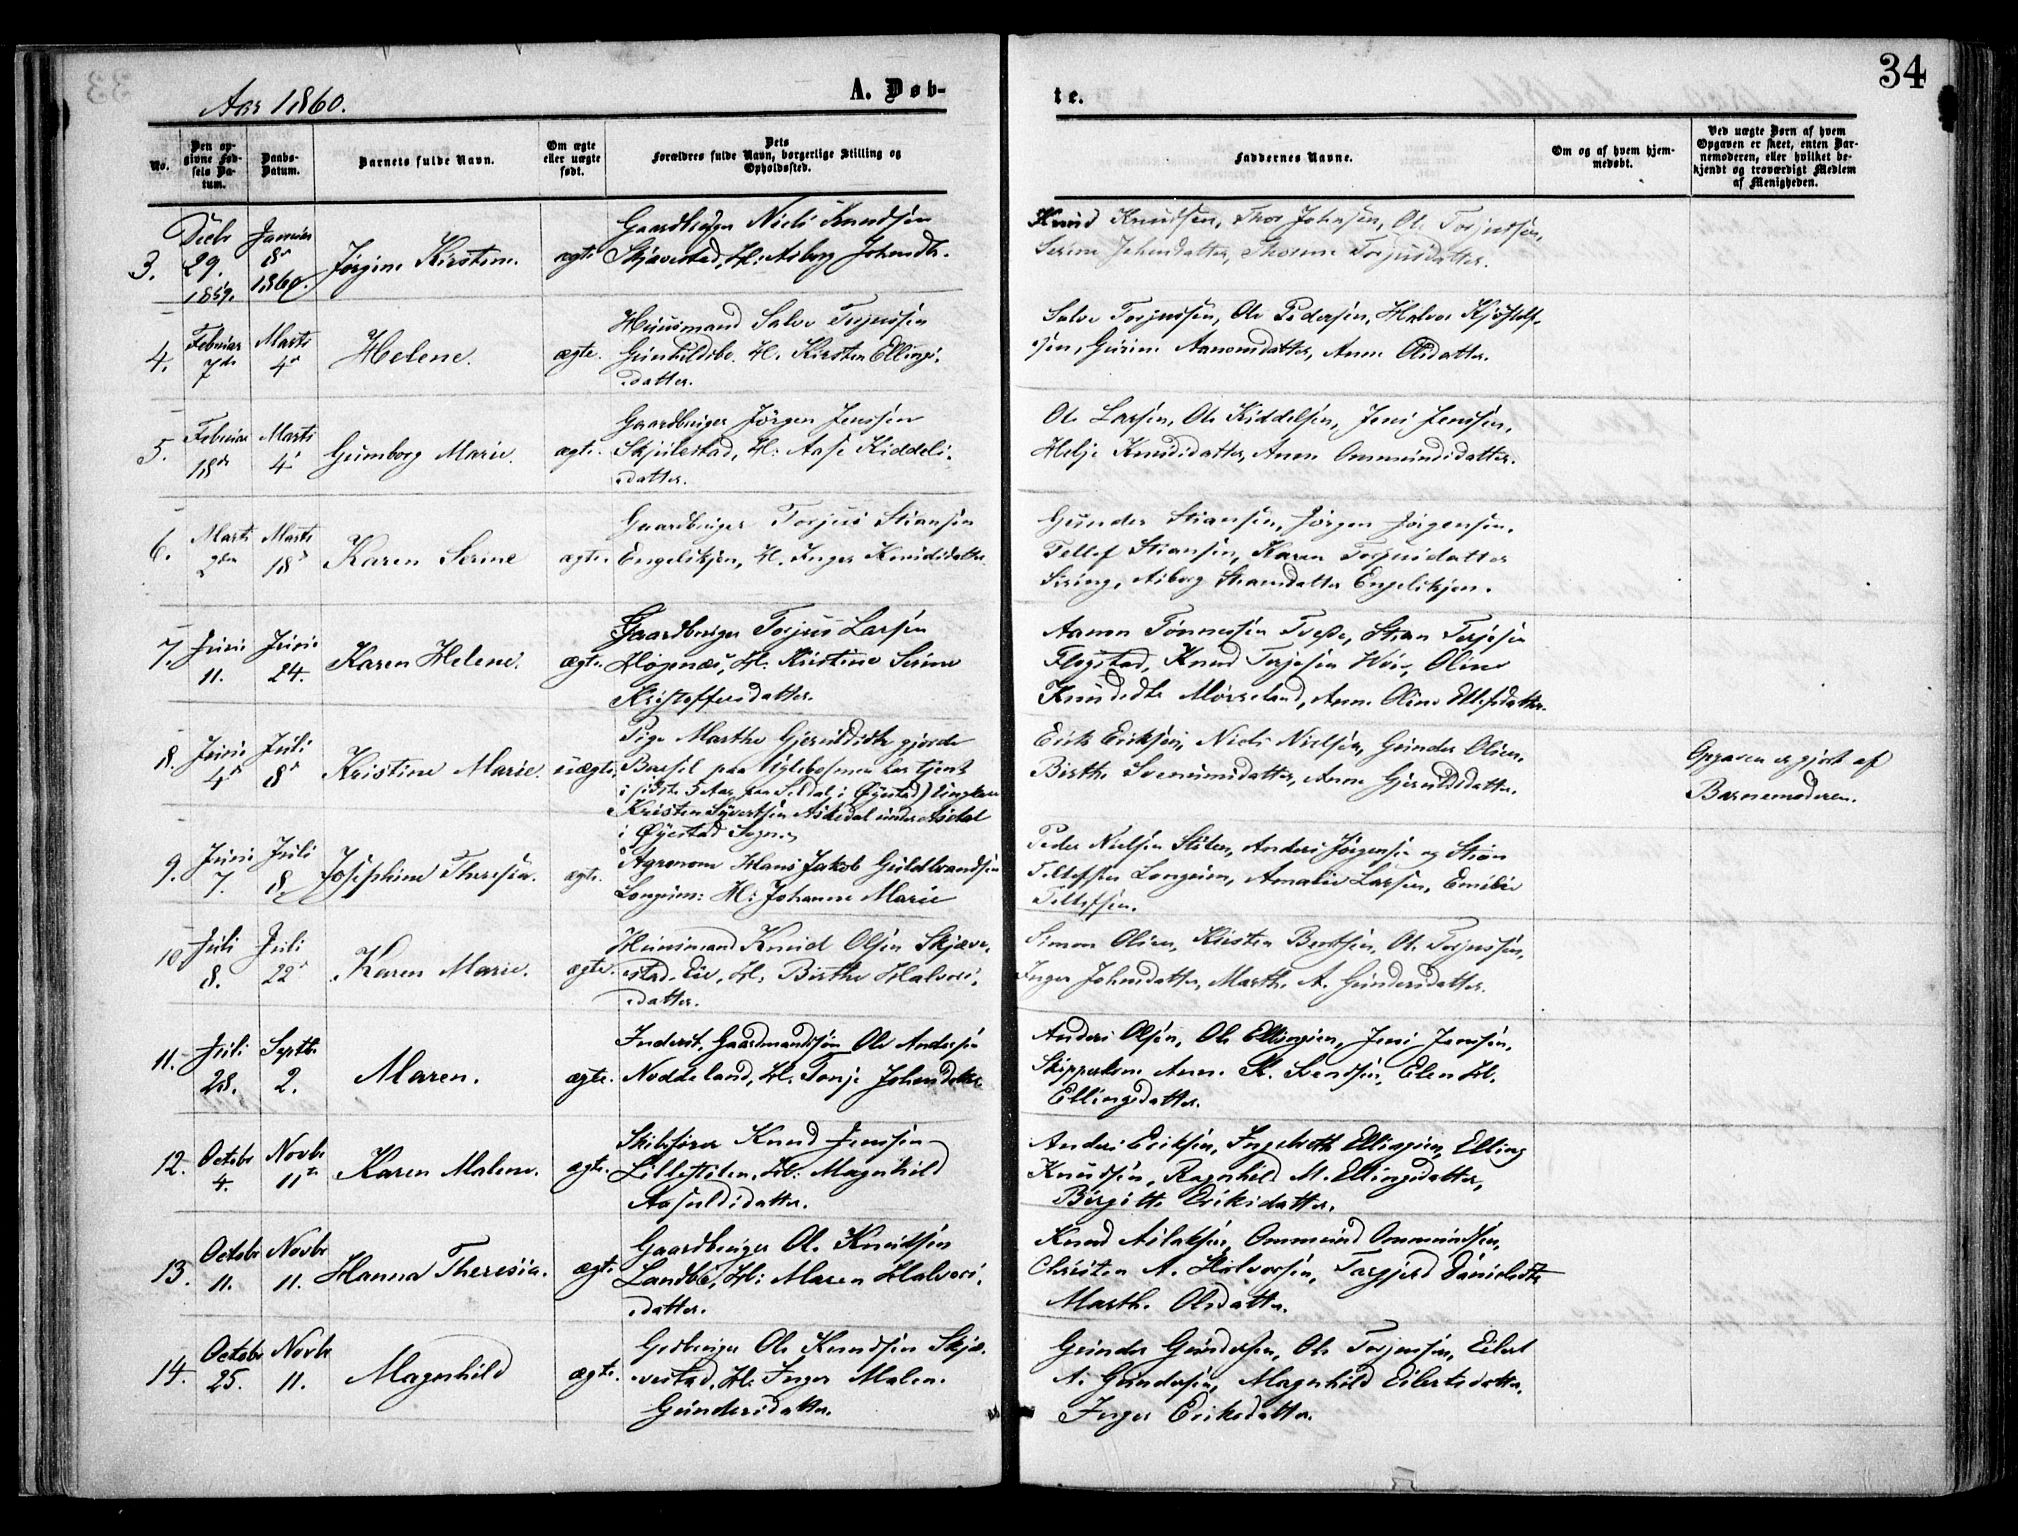 34
Aar 1860.
A. Døb-
te.
No.
Den op-
givne Fød-
sels Da-
tum.
Daabs-
Datum.
Barnets fulde Navn.
Om ægte
eller uægte
født.
Dets
Forældres fulde Navn, borgerlige Stilling og
Opholdssted.
Faddernes Navne.
Om og af hvem hjem-
medøbt.
Ved uægte Børn af hvem
Opgaven er skeet, enten Bar-
nemoderen, eller hvilket be-
kjendt og troværdigt Medlem
af Menigheden.
3.
Decbr
29.
1859.
Januar
8
1860.
Jørgine Kirstine.
ægte
Gaardbruger Niels Knudsen
Skjævestad, H: Asborg Johnsdtr.
Knud Knudsen, Thor Johnsen, Ole Torjussen,
Serine Johnsdatter, Thorine Torjusdatter.
4.
Februar
7de
Marts
4
Helene.
ægte.
Huusmand Salve Torjussen
Gunhildsbo. H. Kirsten Ellings-
datter.
Salve Torjussen, Ole Pedersen, Halvor Kjøstolf-
sen, Gurine Aanonsdatter, Anne Olsdatter.
5.
Februar
18de
Marts
4
Gumborg Marie.
ægte.
Gaardbruger Jörgen Jenssen
Skjulestad, H: Aase Kiddels-
datter.
Ole Larsen, Ole Kiddelsen, Jens Jenssen,
Helje Knudsdatter, Anne Ommundsdatter.
6.
Marts
2den
Marts
18
Karen Serine
ægte.
Gaardbruger Torjus Stiansen
Engelskjøn, H. Inger Knudsdatter.
Gunder Stiansen, Jörgen Jørgensen,
Tellef Stiansen, Karen Torjusdatter
Asborg Stiansdatter Engelskjøn.
7.
Juni
11.
Juni
24.
Karen Helene.
ægte.
Gaardbruger Torjus Larsen
Højenæs, H: Kristine Serine
Kristoffersdatter.
Aanon Tönnessen Tvede, Stian Terjesen
Flogstad, Knud Terjesen Oline
Knudsdtr Mörseland, Anne Oline Ellefsdatter.
8.
Juni
4
Juli
8
Kristine Marie.
uægte
Pige Marthe Gjeruldsdtr gjorde
Barsel paa har tjent
i sidste 5 Aar i Øiestad) Ungkar
Kristen Syvertsen Askedal under
i Øyestad Sogn.
Erik Eriksen, Niels Nielsen, Gunder Olsen,
Birthe Svenumsdatter, Anne Gjeruldsdatter.
Opgaven er gjort af
Barnemoderen.
9.
Juni
7.
Juli
8.
Josephine Theresia.
ægte.
Agronom Hans Jakob Guldbrandsen
Longum: H: Johanne Marie
Peder Nielsen Anders Jørgensen og Stian
Tellefsen Longum, Amalie Larsen, Emilie
Tellefsen.
10.
Juli
8.
Juli
22
Karen Marie.
ægte.
Huusmand Knud Olsen Skjæve-
stad Eie, H. Birthe Halvors-
datter.
Simon Olsen, Kirsten Berthsen, Ole Torjussen,
Inger Johnsdatter, Marthe A. Gundersdatter.
11.
Juli
28.
Septbr
2.
Maren.
ægte.
Inderst, Gaardmandssøn Ole Andersen
Noddeland, H. Tonje Johnsdatter
Anders Olsen, Ole Ellingsen, Jens Jenssen,
Skipperkone Anne K. Svendsen, Elen H.
Ellingsdatter.
12.
Octobr
4.
Novbr
11te
Karen Malene.
ægte.
Skibsfører Knud Jenssen
H: Magnhild
Aasuldsdatter.
Anders Eriksen, Ingebreth Ellingsen, Elling
Knudsen, Ragnhild M. Ellingsdatter,
Birgitte Eriksdatter.
13.
Octobr
11.
Novbr
11.
Hanna Theresia.
ægte.
Gaardbruger Ole Knudsen
Landbö, H: Maren Halvors-
datter.
Knud Aslaksen, Ommund Ommundsen,
Christen A. Halvorsen, Torgjerd Danielsdtr
Marthe Olsdatter.
14.
Octobr
25.
Novbr
11.
Magnhild
ægte.
Gdbruger Ole Knudsen Skjæ-
vestad, H: Inger Malene
Gundersdatter.
Gunder Gundersen, Ole Torjussen, Eilert
A. Gundersen, Magnhild Eilertsdatter,
Inger Eriksdatter.